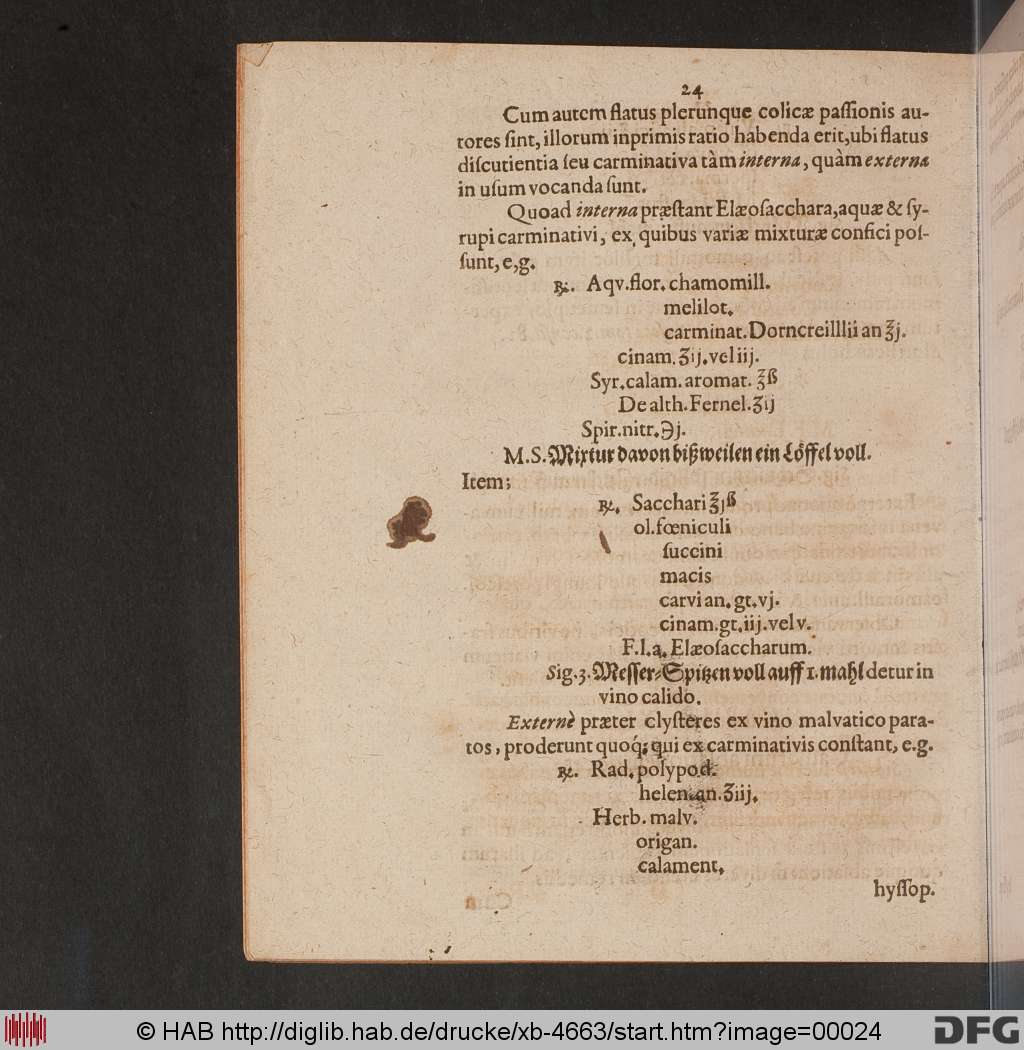 24
Cum autem flatus plerunque colicæ paſſionis au-
tores ſint, illorum inprimis ratio habenda erit, ubi flatus
diſcutientia ſeu carminativa tàm interna, quàm externa
in uſum vocanda ſunt.
Quoad interna præſtant Elæoſacchara, aquæ & ſy-
rupi carminativi, ex quibus variæ mixturæ confici poſ-
ſunt, e, g.
℞. Aqv. flor. chamomill.
melilot.
carminat. Dorncreilllii an ℥j.
cinam. ʒij. vel iij.
Syr. calam. aromat. ℥ß
De alth. Fernel. ʒij
Spir. nitr. ℈j.
M. S. Mixtur davon bißweilen ein Löffel voll.
Item;
℞. Sacchari ℥jß
ol. fœniculi
ſuccini
macis
carvi an. gt. vj.
cinam. gt. iij. vel v.
F. l. a. Elæoſaccharum.
Sig. 3. Meſſer-Spitzen voll auff 1. mahl detur in
vino calido.
Externè præter clyſteres ex vino malvatico para-
tos, proderunt quoq́; qui ex carminativis conſtant, e. g.
℞. Rad. polypod.
helen. an. ʒiij.
Herb. malv.
origan.
calament.
hyſſop.
© HAB http://diglib.hab.de/drucke/xb-4663/start.htm?image=00024
DFG